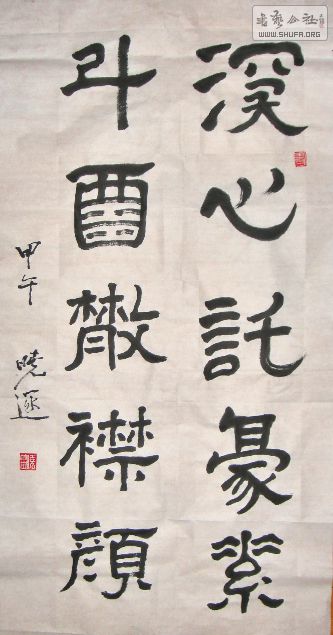 深心託豪素
斗酉散襟顏
甲午 曉
書藝公社
WWW.SHUFA.ORG